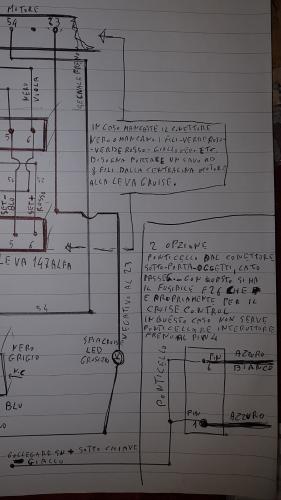 MOTORE
54
23
NERO
VIOLA
SEGNALE FRENO
IN CASO MANCASSE IL CONETTORE
VERO O MANCANO I FILI-VERDE ROSSO-
-VERDE ROSSO-GIALLO VERO ETC.
BISOGNA PORTARE UN CAVO AD
8 FILI DALLA CENTRALINA MOTORE
ALLA LEVA CRUISE.
5
6
52
SET-
BLU
SET+
ROSSO
5
6
LEVA 147 ALFA
54
NEGATIVO AL 23
2 OPZIONE
PONTICELLO DAL CONETTORE
SOTTO PORTA-OGGETTI, LATO
PASSEG- CON QUESTO SI HA
IL FUSIBILE F26 CHE
E APROPRIAMENTE PER IL
CRUISE CONTROL.
IN QUESTO CASO NON SERVE
PONTICELLARE INTERUTTORE
FRENO AL PIN 4
NERO
GRIGIO
SPIA CRUIS
LED
CRUSCOTTO
BLU
PONTICELLO
PIN
6
AZZURO
BIANCO
PIN
1
AZZURO
COLLEGARE UN + SOTTO CHIAVE
GIALLO